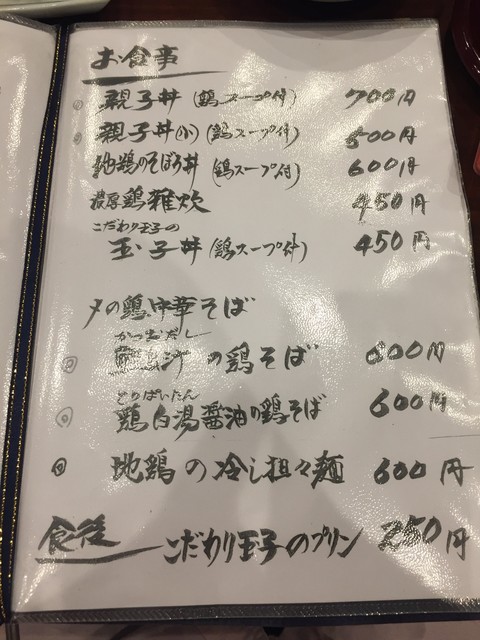 お食事
親子丼(鶏スープ付) 700円
親子丼(小)(鶏スープ付) 500円
地鶏のそぼろ丼(鶏スープ付) 600円
濃厚鶏雑炊 450円
こだわり玉子の
玉子丼(鶏スープ付) 450円
〆の鶏中華そば
かつおだし
の鶏そば 600円
とりぱいたん
鶏白湯醤油の鶏そば 600円
◎ 地鶏の冷し担々麺 600円
食後
こだわり玉子のプリン 250円